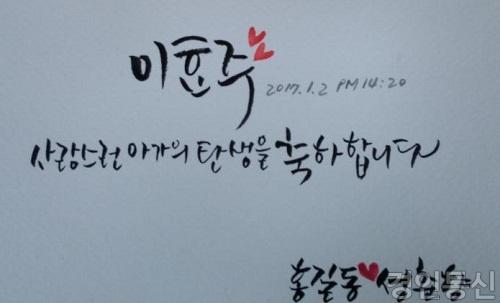 이효주
2017.1.2 PM 14:20
사랑스런 아가의 탄생을 축하합니다
홍길동
경인통신